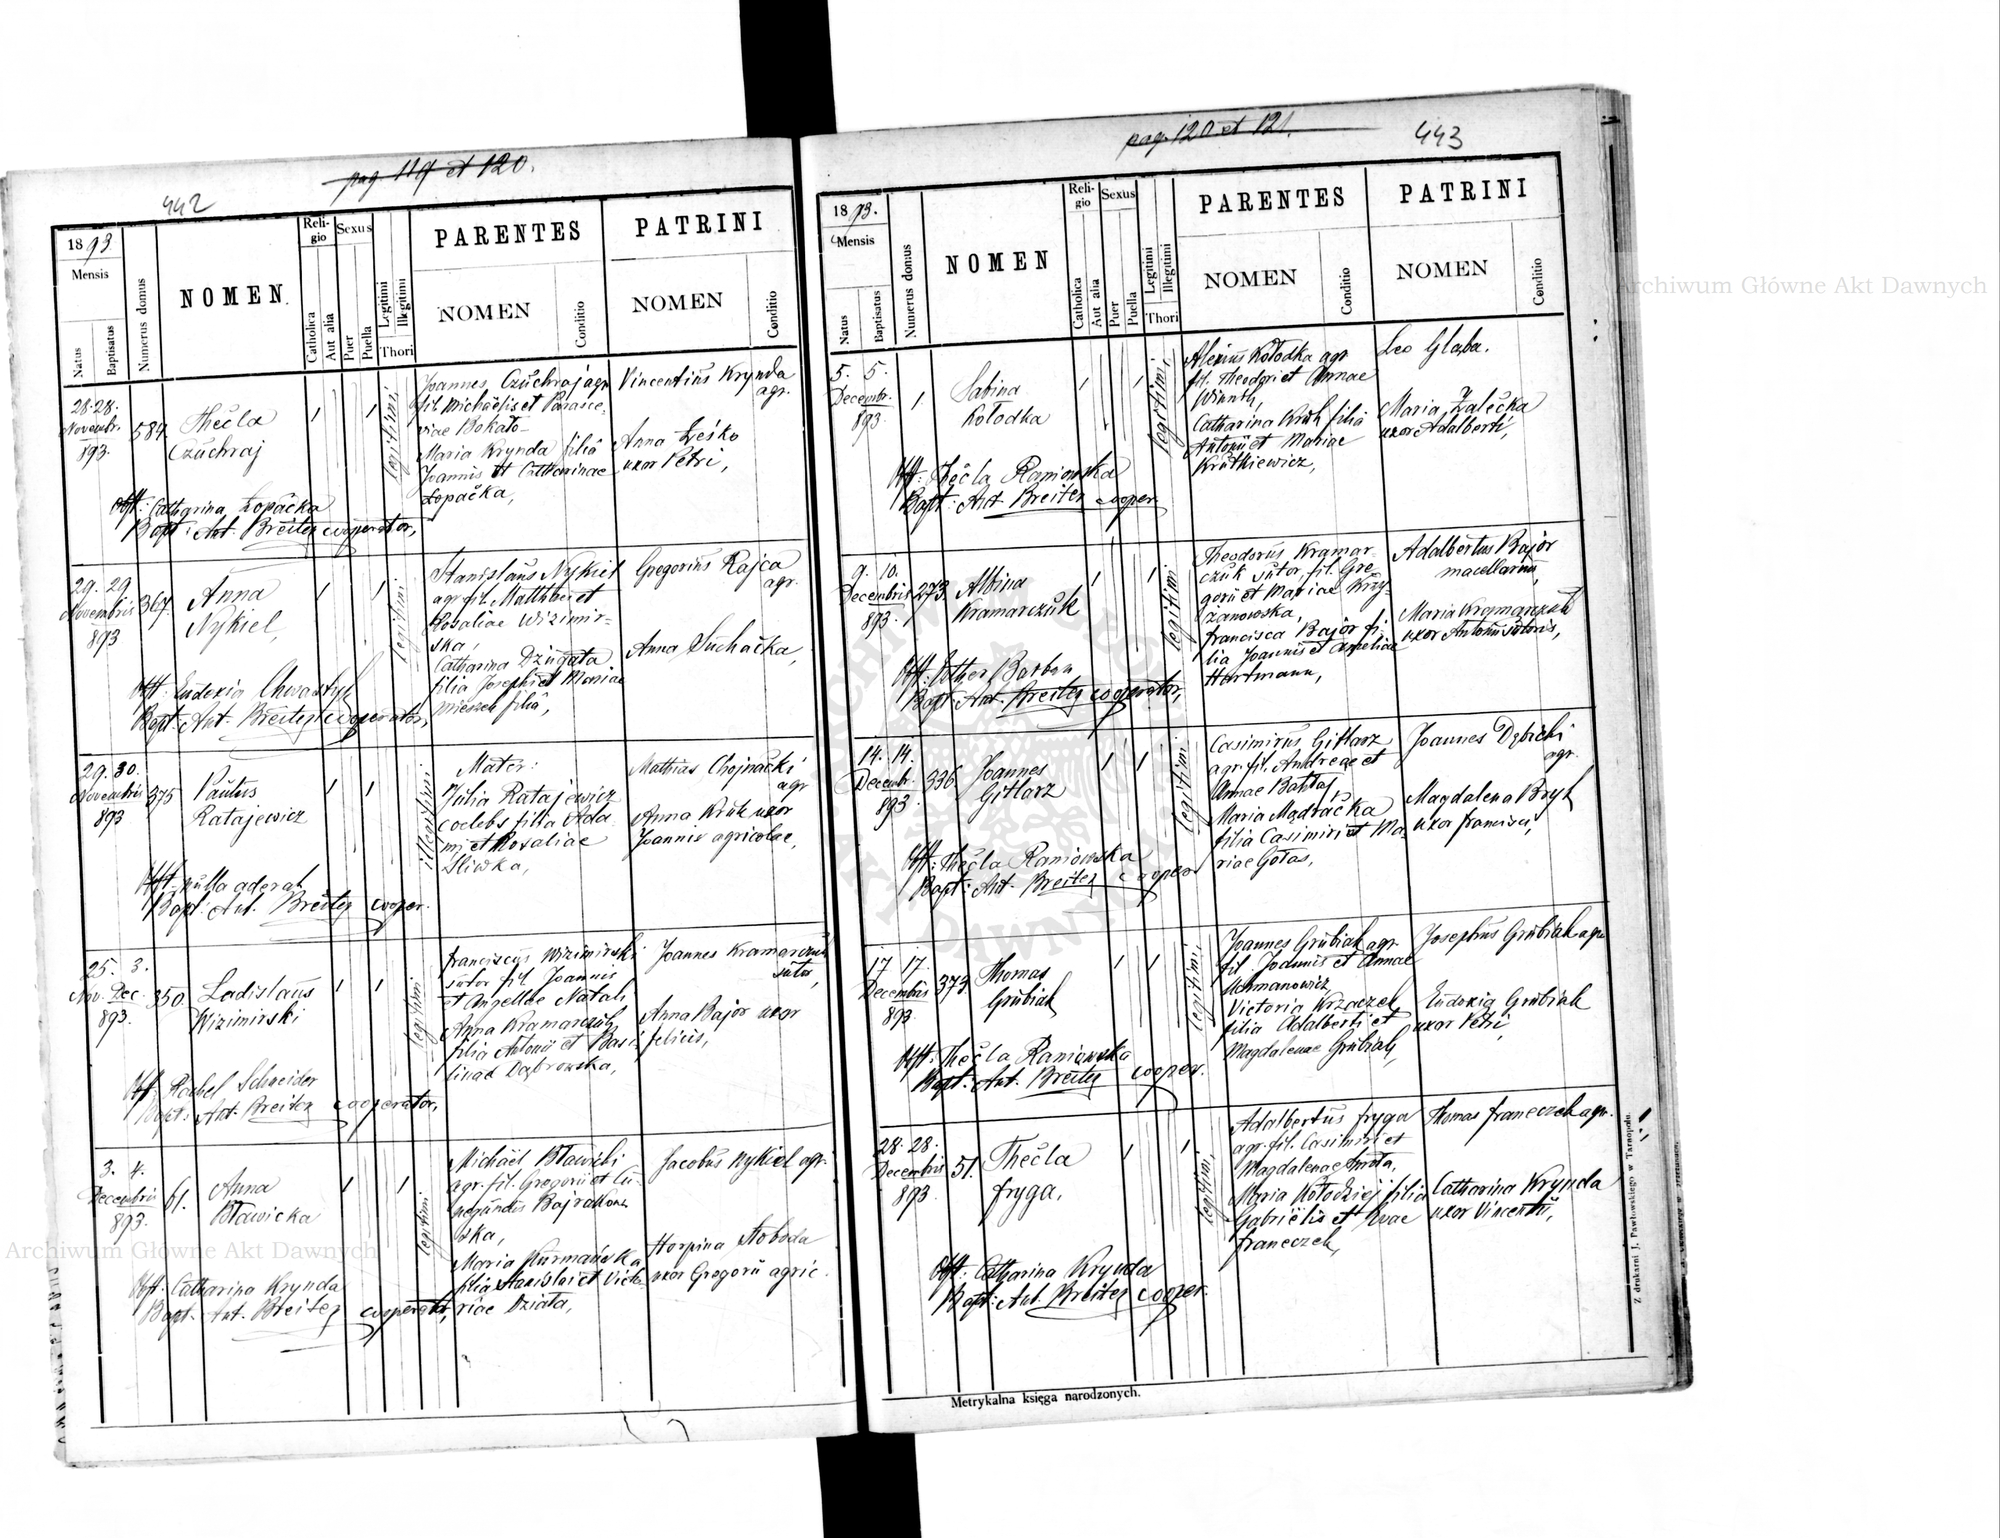 pag. 119 et 120.
442
1893
Mensis
Natus
Baptisatus
Numerus domus
NOMEN
Religio
Catholica
Aut alia
Sexus
Puer
Puella
Legitimi
Illegitimi
Thori
PARENTES
NOMEN
Conditio
PATRINI
NOMEN
Conditio
28. 28.
Novembr.
893.
587
Thecla
Czuchraj
legitimi,
Joannes Czuchraj agr
fil. Michaelis et Parasce-
viae Bokało-
Maria Krynda filia
Joannis et Catharinae
Łopacka,
Vincentius Krynda
agr.
Anna Łeśko
uxor Petri,
Obst: Catharina Łopacka
Bapt: Ant. Breiter cooperator,
29. 29.
Novembris
893
367
Anna
Nykiel,
legitimi
Stanislaus Nykiel
agr. fil. Matthaei et
Rosaliae Wizimir-
ska,
Catharina Dziugała
filia Josephi et Mariae
filia,
Gregorius Rajca
agr.
Anna Suchacka,
Obst: Eudoxia
Bapt: Ant. Breiter cooperator,
29. 30.
Novembris
893
375
Paulus
Ratajewicz
illegitimi
Mater:
Julia Ratajewicz
coelebs filia Ada
mi et Rosaliae
Sliwka,
Mathias Chojnacki
agr
Anna Kruk uxor
Joannis agricolae,
Obst: nulla aderat
Bapt. Ant. Breiter cooper.
25. 3.
Nov. Dec.
893.
350
Ladislaus
Wizimirski
legitimi
Franciscus Wizimirski
sutor fil Joannis
et Angellae Natali
Anna Kramarczuk
filia Antonii et Basi-
lissae Dąbrowska,
Joannes Kramarczuk
sutor,
Anna Bajor uxor
felicis,
Obst: Rachel Schneider
Bapt: Ant. Breiter cooperator,
3. 4.
Decembris
893.
61.
Anna
Bławicka
legitimi
Michael Bławicki
agr. fil. Gregorii et Cu-
negundis
ska,
Maria Kurmańska
filia Stanislai et Victo
riae Działa,
Jacobus Nykiel agr.
Horpina Słoboda
uxor Gregorii agric.
Obst: Catharina Krynda
Bapt. Ant. Breiter cooperator,
pag. 120 et 121.
443
1893.
Mensis
Natus
Baptisatus
Numerus domus
NOMEN
Religio
Catholica
Aut alia
Sexus
Puer
Puella
Legitimi
Illegitimi
Thori
PARENTES
NOMEN
Conditio
PATRINI
NOMEN
Conditio
5. 5.
Decembr.
893.
1
Sabina
Kołodka
legitimi,
Alexius Kołodka agr
fil. Theodori et Annae
Winnty,
Catharina Kruk filia
Antonii et Mariae
Krutkiewicz,
Leo Głąba.
Maria Załecka
uxor Adalberti,
Obst: Thecla Raniowska
Bapt: Ant. Breiter cooper
9. 10.
Decembris
893.
273.
Albina
Kramarczuk
legitimi
Theodorus Kramar-
czuk sutor, fil. Gre-
gorii et Mariae Krzy-
żanowska,
Francisca Bajor fi-
lia Joannis et Apeliae
Hartmann,
Adalbertus Bajor
macellarius,
Maria Kramarczuk
uxor Antonii sutoris,
Obst: Esther Barban
Bapt: Ant. Breiter cooperator,
14. 14.
Decembr.
893
336.
Joannes
Gitlarz
legitimi
Casimirus Gitlarz
agr. fil. Andreae et
Annae Bahtaj,
Maria Mądracka
filia Casimiri et Ma-
riae Gołas,
Joannes Dębicki
agr.
Magdalena Bryk
uxor Francisci,
Obst: Thecla Raniowska
Bapt: Ant. Breiter cooper
17 17.
Decembris
893
373.
Thomas
Grubiak
legitimi.
Joannes Grubiak agr.
fil. Joannis et Annae
Uchmanowicz
Victoria Krzaczek
filia Adalberti et
Magdalenae Grubiak,
Josephus Grubiak agr.
Eudoxia Grubiak
uxor Petri,
Obst: Thecla Raniowska
Bapt. Ant. Breiter cooper.
28. 28.
Decembris
893
51.
Thecla
Fryga,
legitimi,
Adalbertus Fryga
agr. fil. Casimiri et
Magdalenae Smota,
Maria Kołodziej filia
Gabrielis et Evae
Franeczek,
Thomas Franeczek agr.
Catharina Krynda
uxor Vincentii,
Obst: Catharina Krynda
Bapt: Ant. Breiter cooper.
Metrykalna księga narodzonych.
Z drukarni J. Pawłowskiego w Tarnopolu.
Archiwum Główne Akt Dawnych
Archiwum Główne Akt Dawnych